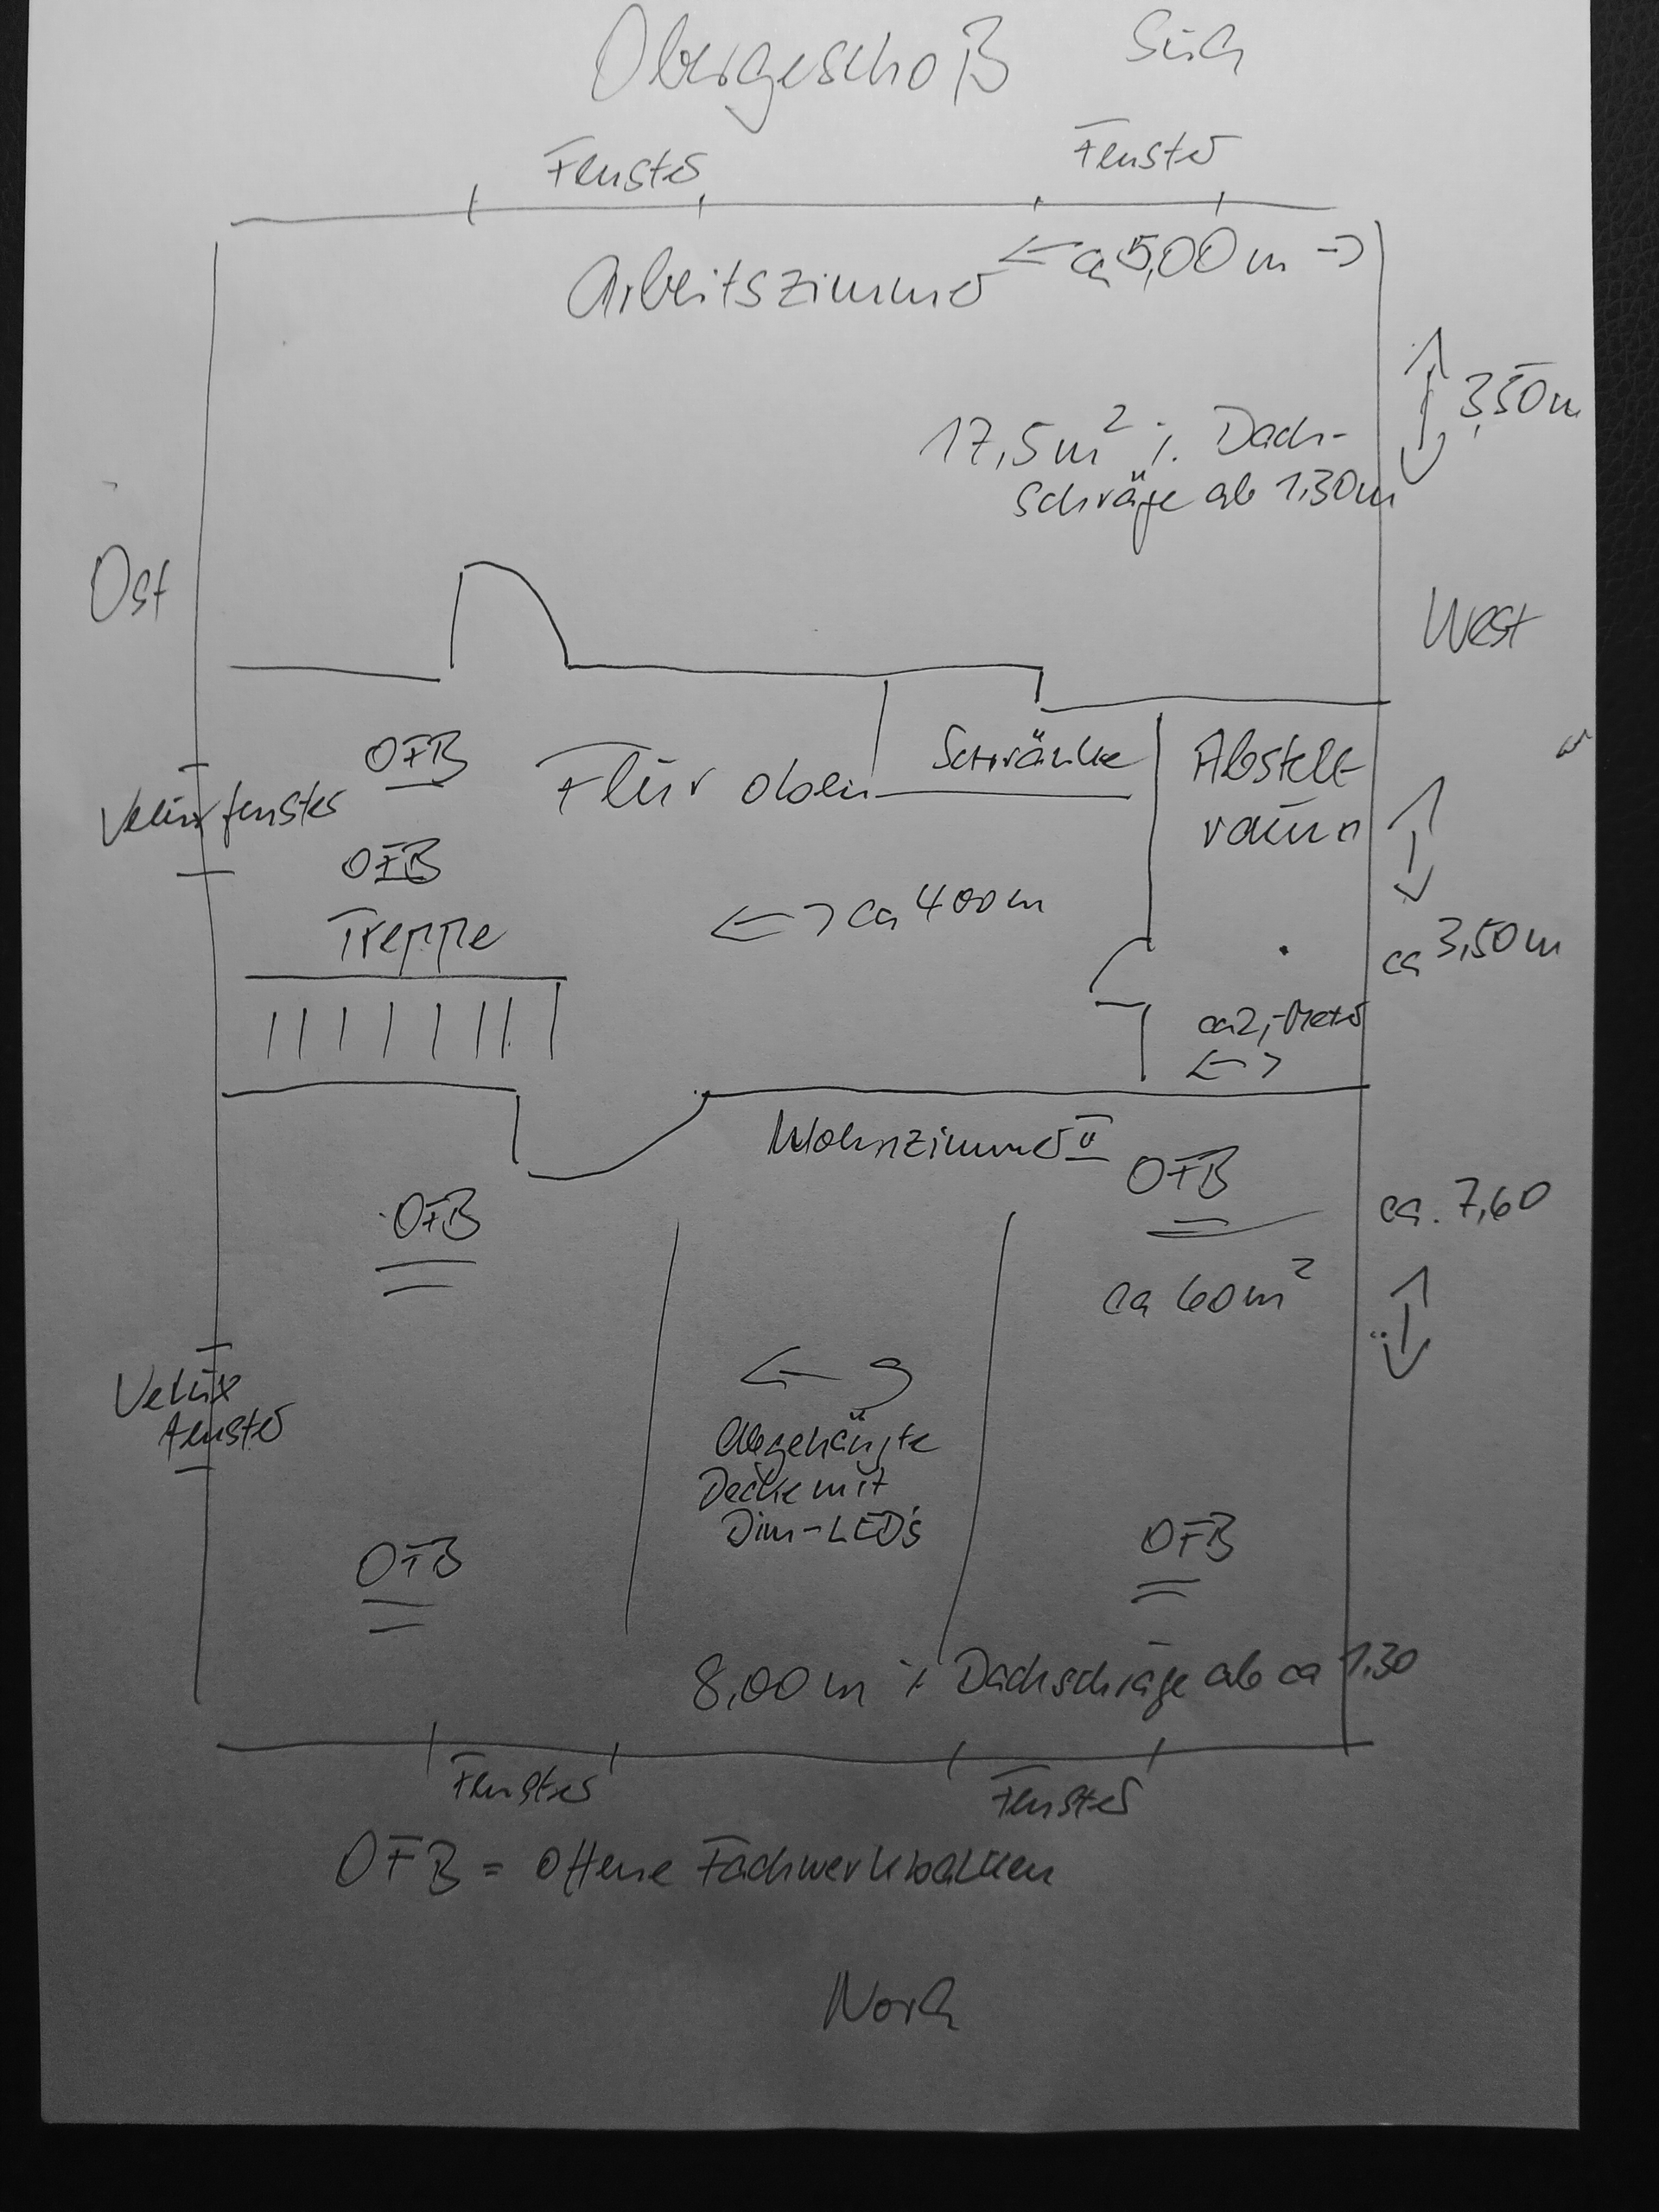 Obergeschoß Süd
Fenster Fenster
Arbeitszimmer ca 5,00 m
3,50 m
17,5 m² i. Dach-
schräge ab 1,30m
Ost
West
OFB
Flur oben
Schränke
Abstell-
raum
Velux fenster
OFB
Treppe
ca 400 m
ca 3,50 m
ca 2,- Meter
Wohnzimmer II
OFB
OFB
ca. 7,60
ca 60 m²
Velux
fenster
abgehängte
Decke mit
Dim-LED's
OFB
OFB
8,00 m i Dachschräge ab ca 1.30
Fenster Fenster
OFB = offene Fachwerkbalken
Nord